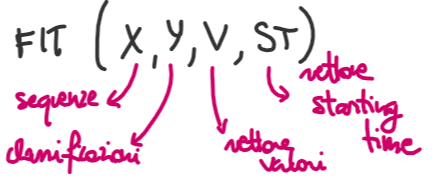 FIT (X, Y, V, ST)
sequenze
classificazioni
vettore
valori
vettore
starting
time